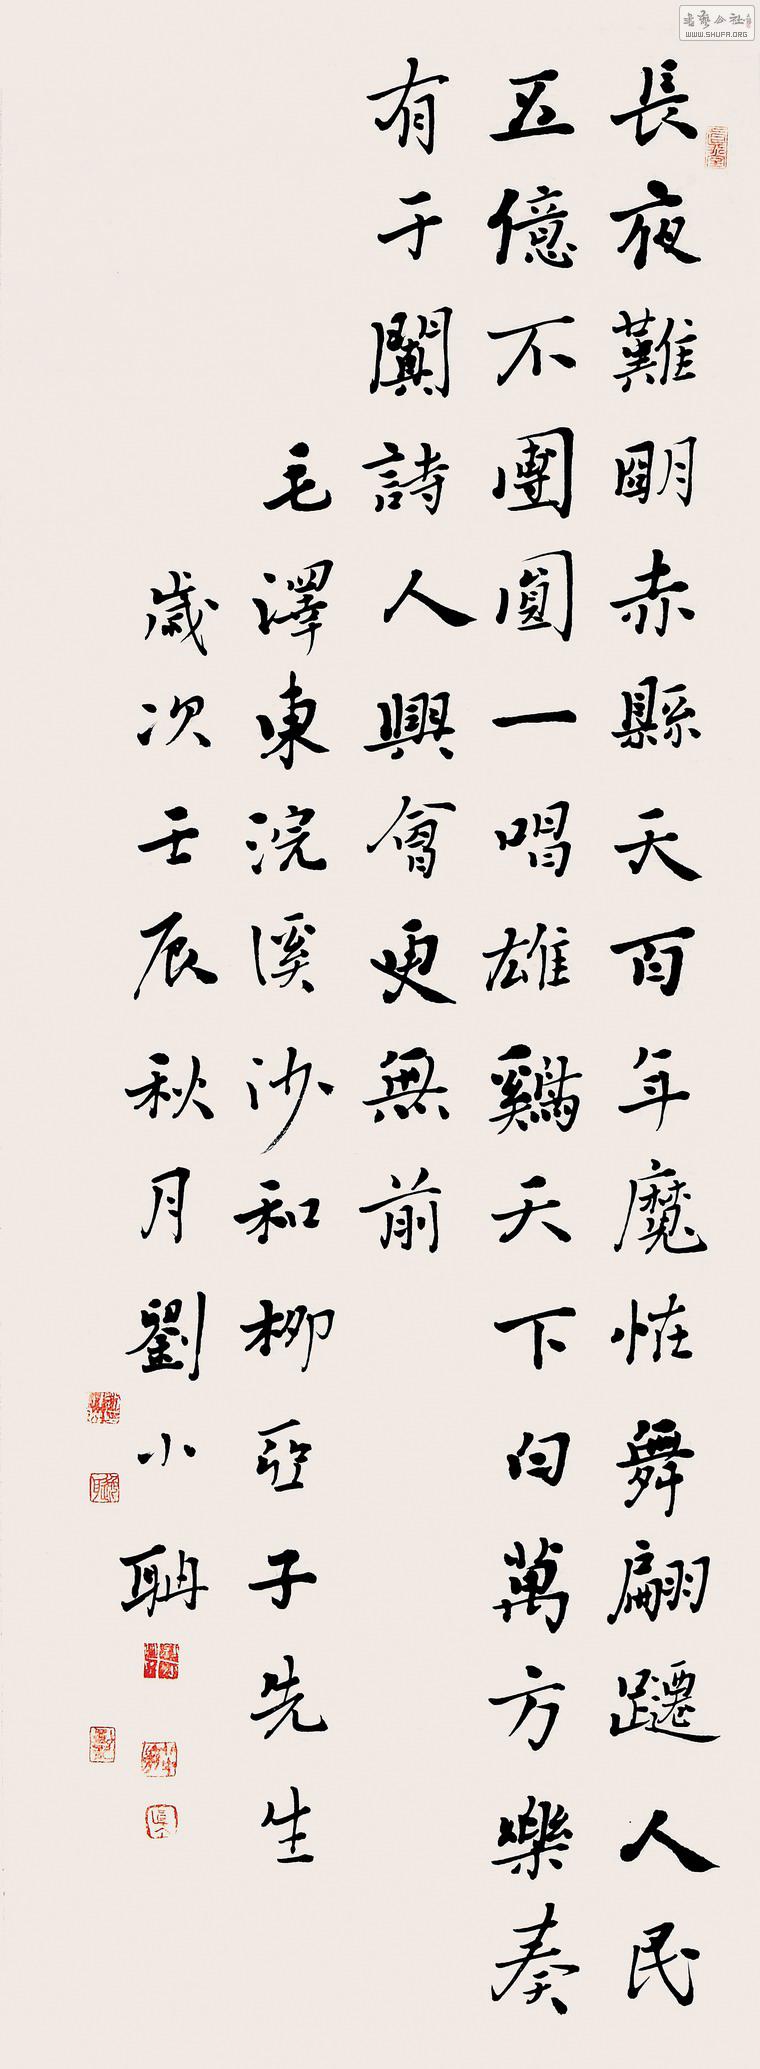 長夜難明赤縣天百年魔怪舞翩躚人民
五億不團圓一唱雄鷄天下白萬方樂奏
有于闐詩人興會更無前
毛澤東浣溪沙和柳亞子先生
歲次壬辰秋月劉小聃
WWW.SHUFA.ORG